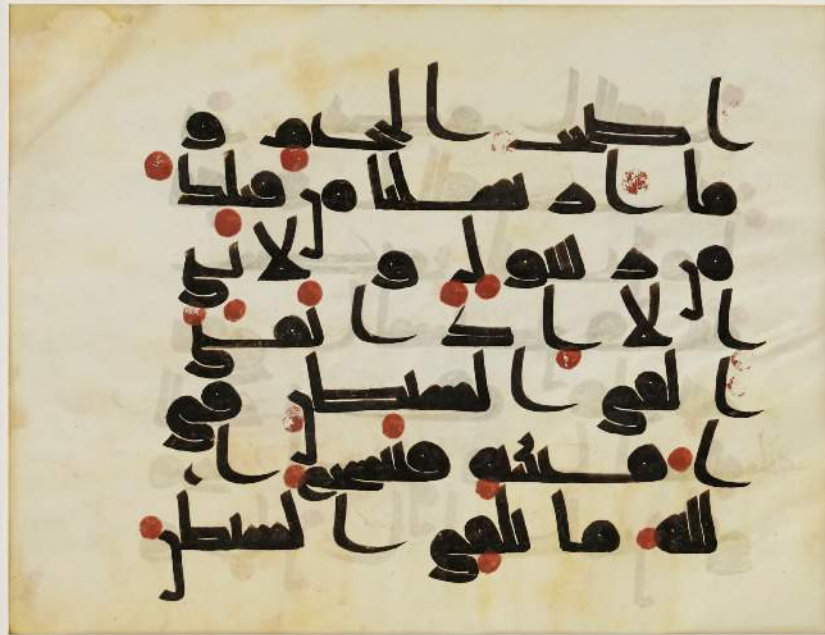 اصحب الجحيم و
ما ارسلنا من قبلك
من رسول ولا نبي
الا اذا تمنى
القى الشيطن في
امنيته فينسخ ا
لله ما يلقي الشيطن